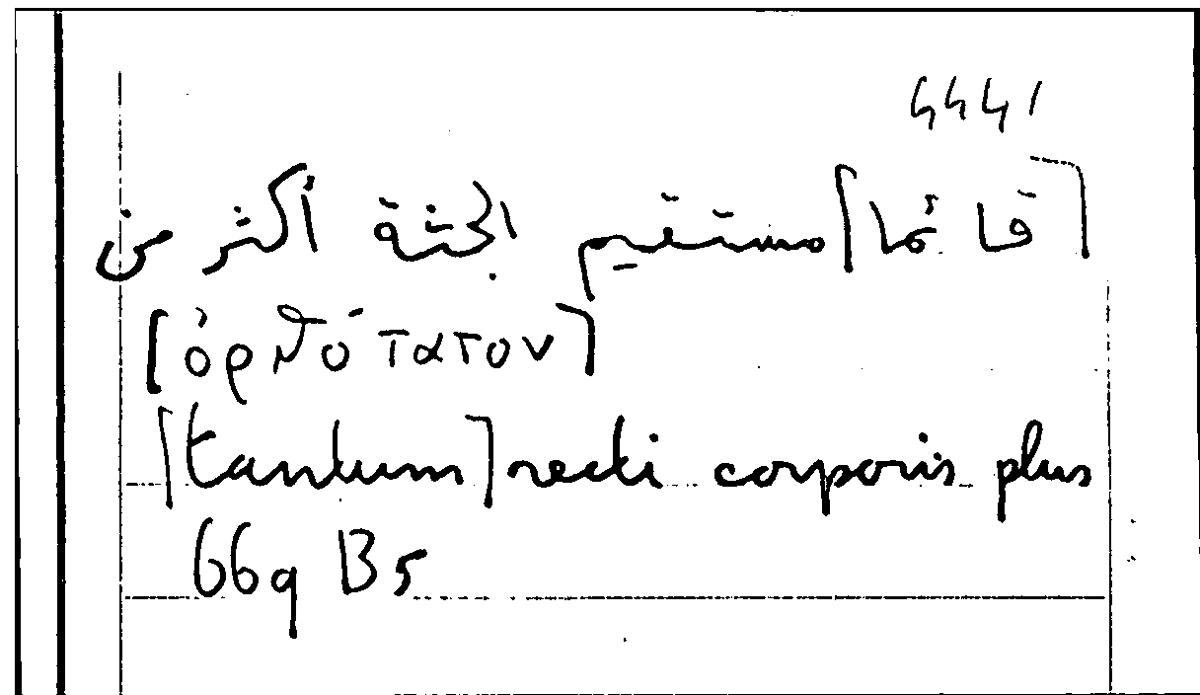 4441
[قائما] مستقيم الجثة أكثر من
[ὀρθότατον]
[tantum] recti corporis plus
669 B5